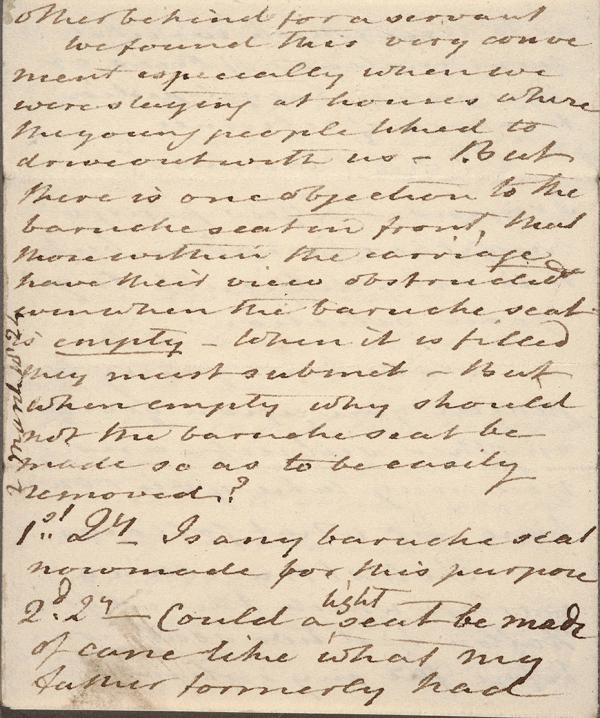 other behind for a servant
We found this very conve
nient especially when we
were staying at houses where
the young people liked to
drive out with us – But
there is one objection to the
barouche seat in front, that
those within the carriage
have their view obstructed
even when the barouche seat
is empty – When it is filled
they must submit – But
when empty why should
not the barouche seat be
made so as to be easily
removed?
1st. Qy Is any barouche seat
now made for this purpose
2d. Qy – Could a light seat be made
of cane like what my
father formerly had